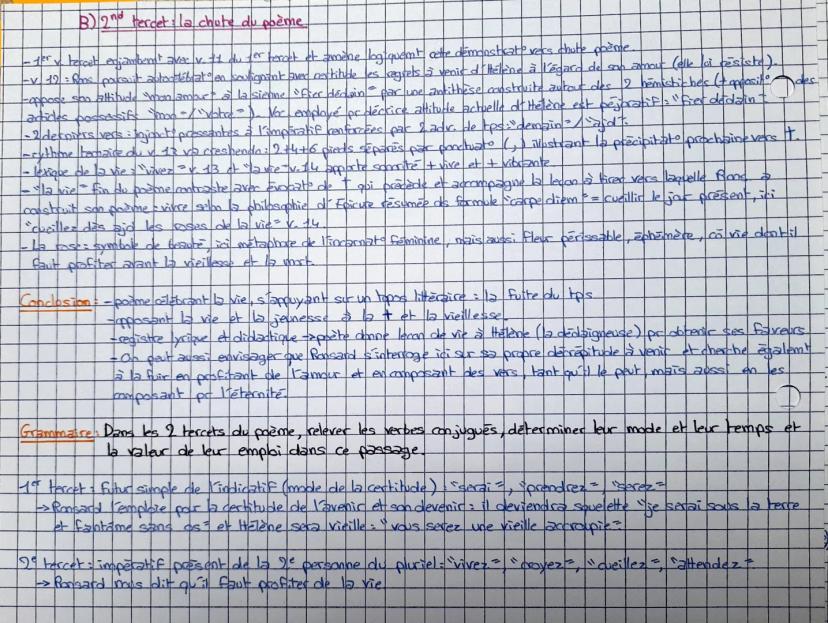 B) 2nd tercet : la chute du poème
- 1er v. tercet enjambent avec v. 11 du 1er tercet et amène logiquemt cette démonstrat° vers chute poème.
- v. 12 : Rons poursuit autocélébrat° en soulignant avec certitude les regrets à venir d'Hélène à l'égard de son amour (elle lui résiste).
- oppose son attitude "mon amour" à la sienne "fier dédain" par une antithèse construite autour des 2 hémistiches (+ opposit° des
articles possessifs "mon" / "votre"). Voc employé pr décrire attitude actuelle d'Hélène est péjoratif : "fier dédain".
- 2 derniers vers : injonct° pressantes à l'impératif renforcées par 2 adv. de tps : "demain" / "ajd".
- rythme ternaire du v. 13 va crescendo : 2+4+6 pieds séparés par ponctuat° (,) illustrant la précipitat° prochaine vers †.
- lexique de la vie : "vivez" v. 13 et "la vie" v. 14 apporte sonorité + vive et + vibrante
- "la vie" = fin du poème contraste avec évocat° de † qui précède et accompagne la leçon à tirer vers laquelle Rons a
construit son poème : vivre selon la philosophie d'Epicure résumée ds formule "carpe diem" = cueillir le jour présent, ici
"cueillez dès ajd les roses de la vie" v. 14
- La rose : symbole de beauté, ici métaphore de l'incarnat° féminine, mais aussi fleur périssable, éphémère, cô vie dont il
faut profiter avant la vieillesse et la mort.
Conclusion : - poème célébrant la vie, s'appuyant sur un topos littéraire : la fuite du tps
- opposant la vie et la jeunesse à la † et la vieillesse.
- registre lyrique et didactique → poète donne leçon de vie à Hélène (la dédaigneuse) pr obtenir ses faveurs
- On peut aussi envisager que Ronsard s'interroge ici sur sa propre décrépitude à venir et cherche égalemt
à la fuir en profitant de l'amour et en composant des vers, tant qu'il le peut, mais aussi en les
composant pr l'éternité.
Grammaire : Dans les 2 tercets du poème, relever les verbes conjugués, déterminer leur mode et leur temps et
la valeur de leur emploi dans ce passage.
1er tercet : futur simple de l'indicatif (mode de la certitude) : "serai", "prendrez", "serez"
→ Ronsard l'emploie par la certitude de l'avenir et son devenir : il deviendra squelette "je serai sous la terre
et fantôme sans os" et Hélène sera vieille : "vous serez une vieille accroupie"
2e tercet : impératif présent de la 2e personne du pluriel : "vivez", "croyez", "cueillez", "attendez"
→ Ronsard nous dit qu'il faut profiter de la vie